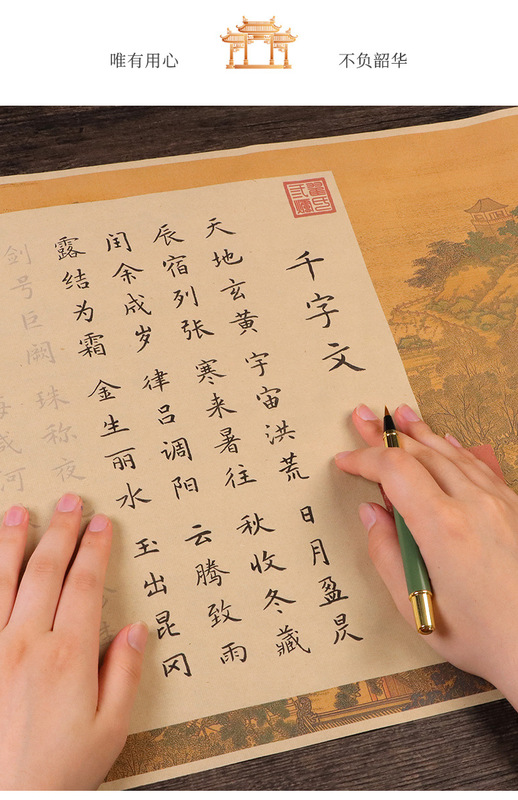 唯有用心
不负韶华
千字文
天地玄黄 宇宙洪荒 日月盈昃
辰宿列张 寒来暑往 秋收冬藏
闰余成岁 律吕调阳 云腾致雨
露结为霜 金生丽水 玉出昆冈
剑号巨阙 珠称夜
海咸河